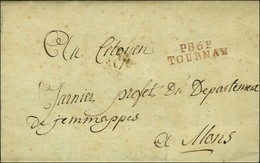 Au Citoyen
P86P
TOURNAY
Garnier préfet du Département
de jemmappes
a Mons